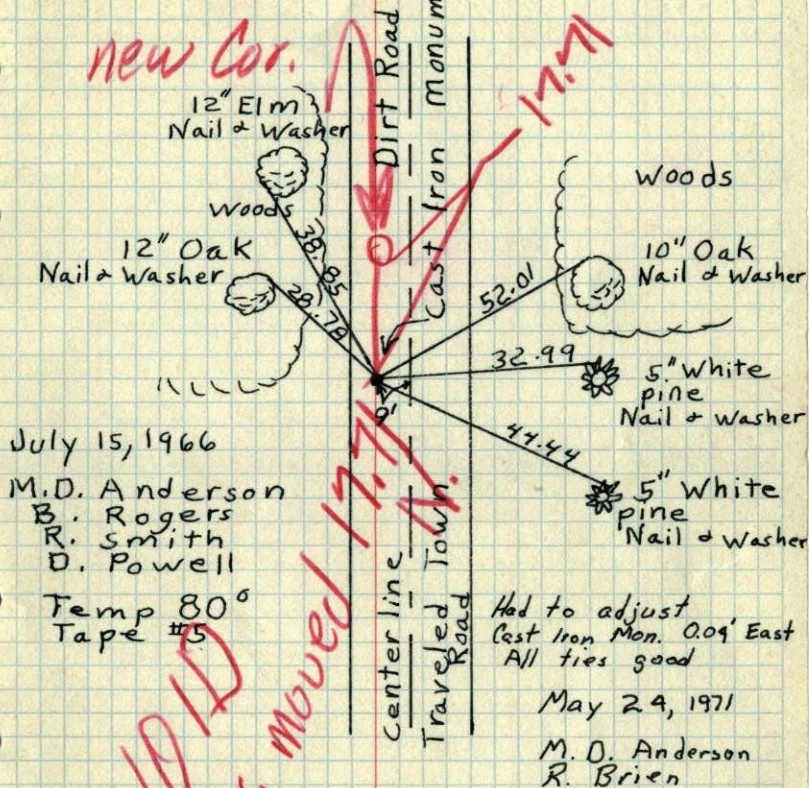 new Cor.
12" Elm
Nail & Washer
Woods
12" Oak
Nail & Washer
38.85
28.78
Dirt Road
Cast Iron Monum
17.71
Woods
10" Oak
Nail & Washer
52.01
32.99
5" White
pine
Nail & Washer
44.44
5" White
pine
Nail & Washer
9'
July 15, 1966
M.D. Anderson
B. Rogers
R. Smith
D. Powell
Temp 80°
Tape #5
moved 17.71 N.
Center line
Traveled Town
Road
Had to adjust
Cast Iron Mon. 0.09' East
All ties good
May 24, 1971
M.D. Anderson
R. Brien